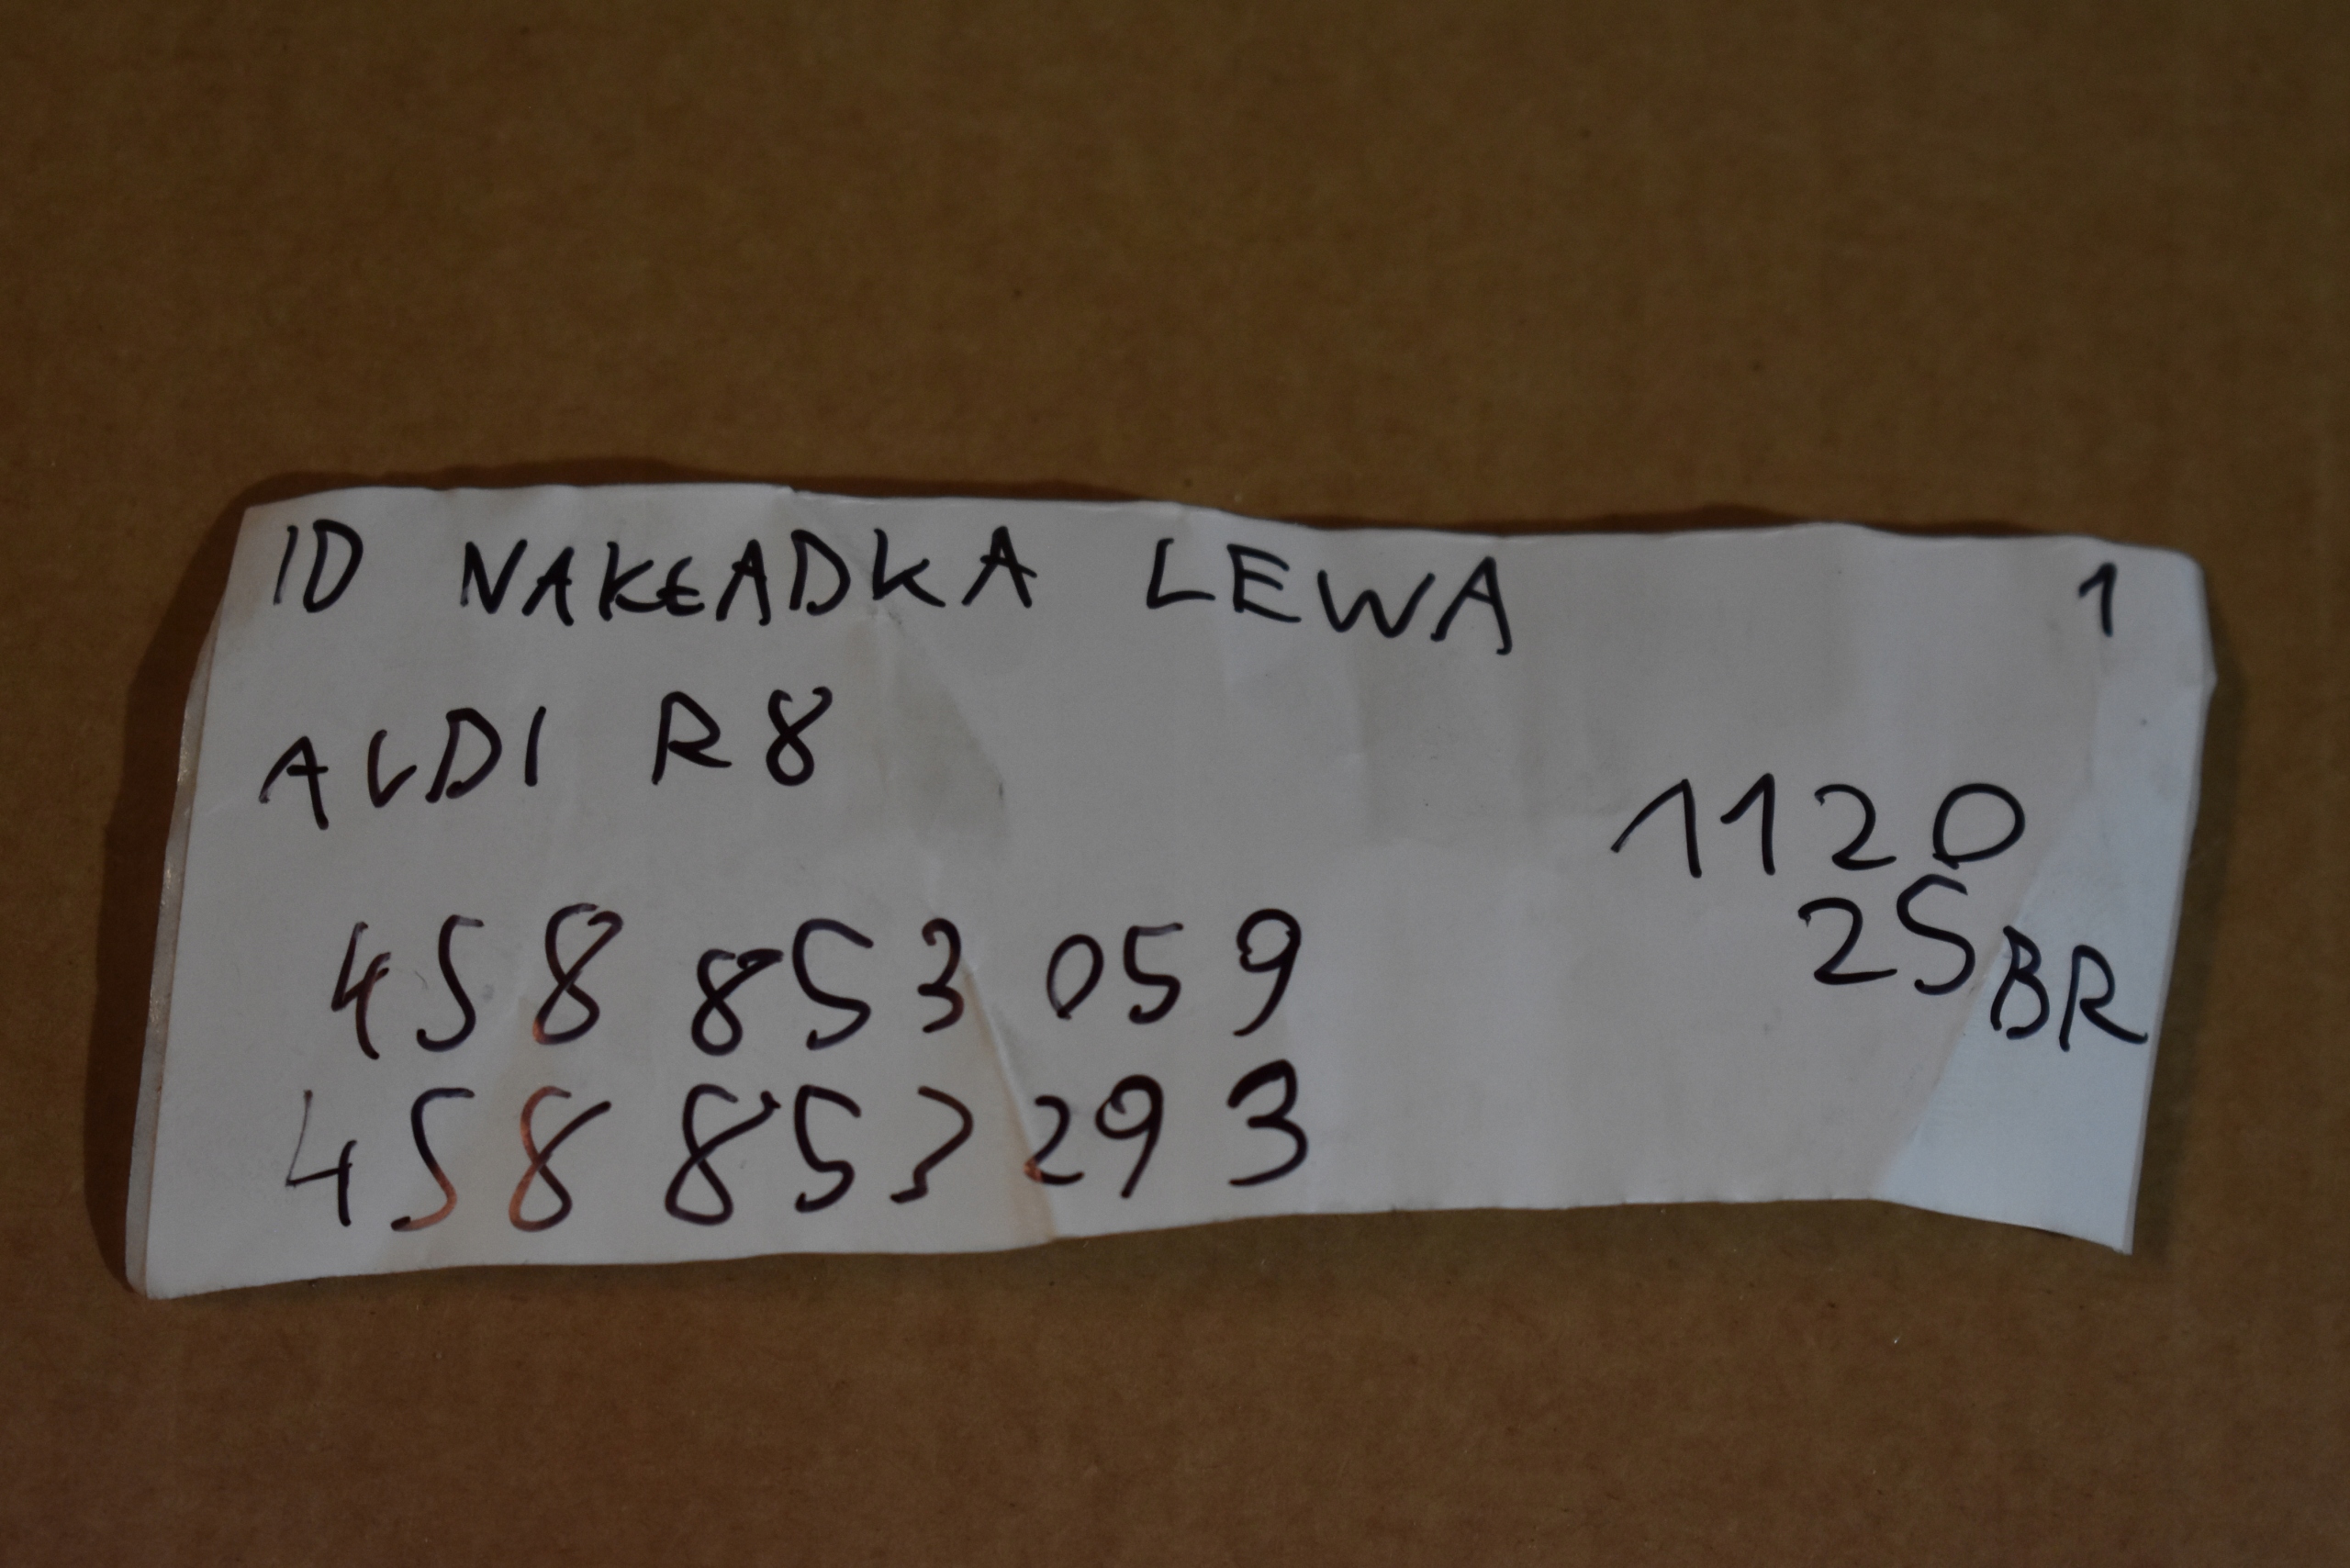 ID NAKŁADKA LEWA 1
AUDI R8
1120
25BR
458 853 059
458 853 293